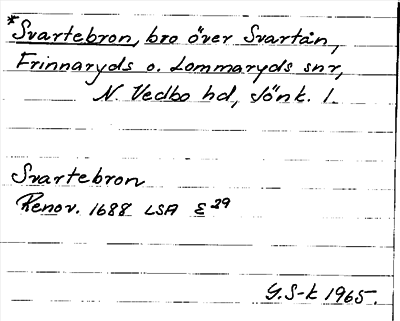 *Svartebron, bro över Svartån,
Frinnaryds o. Lommaryds snr,
N. Vedbo hd, Jönk. l.
Svartebron
Renov. 1688 LSA E 29
G.S-k 1965.